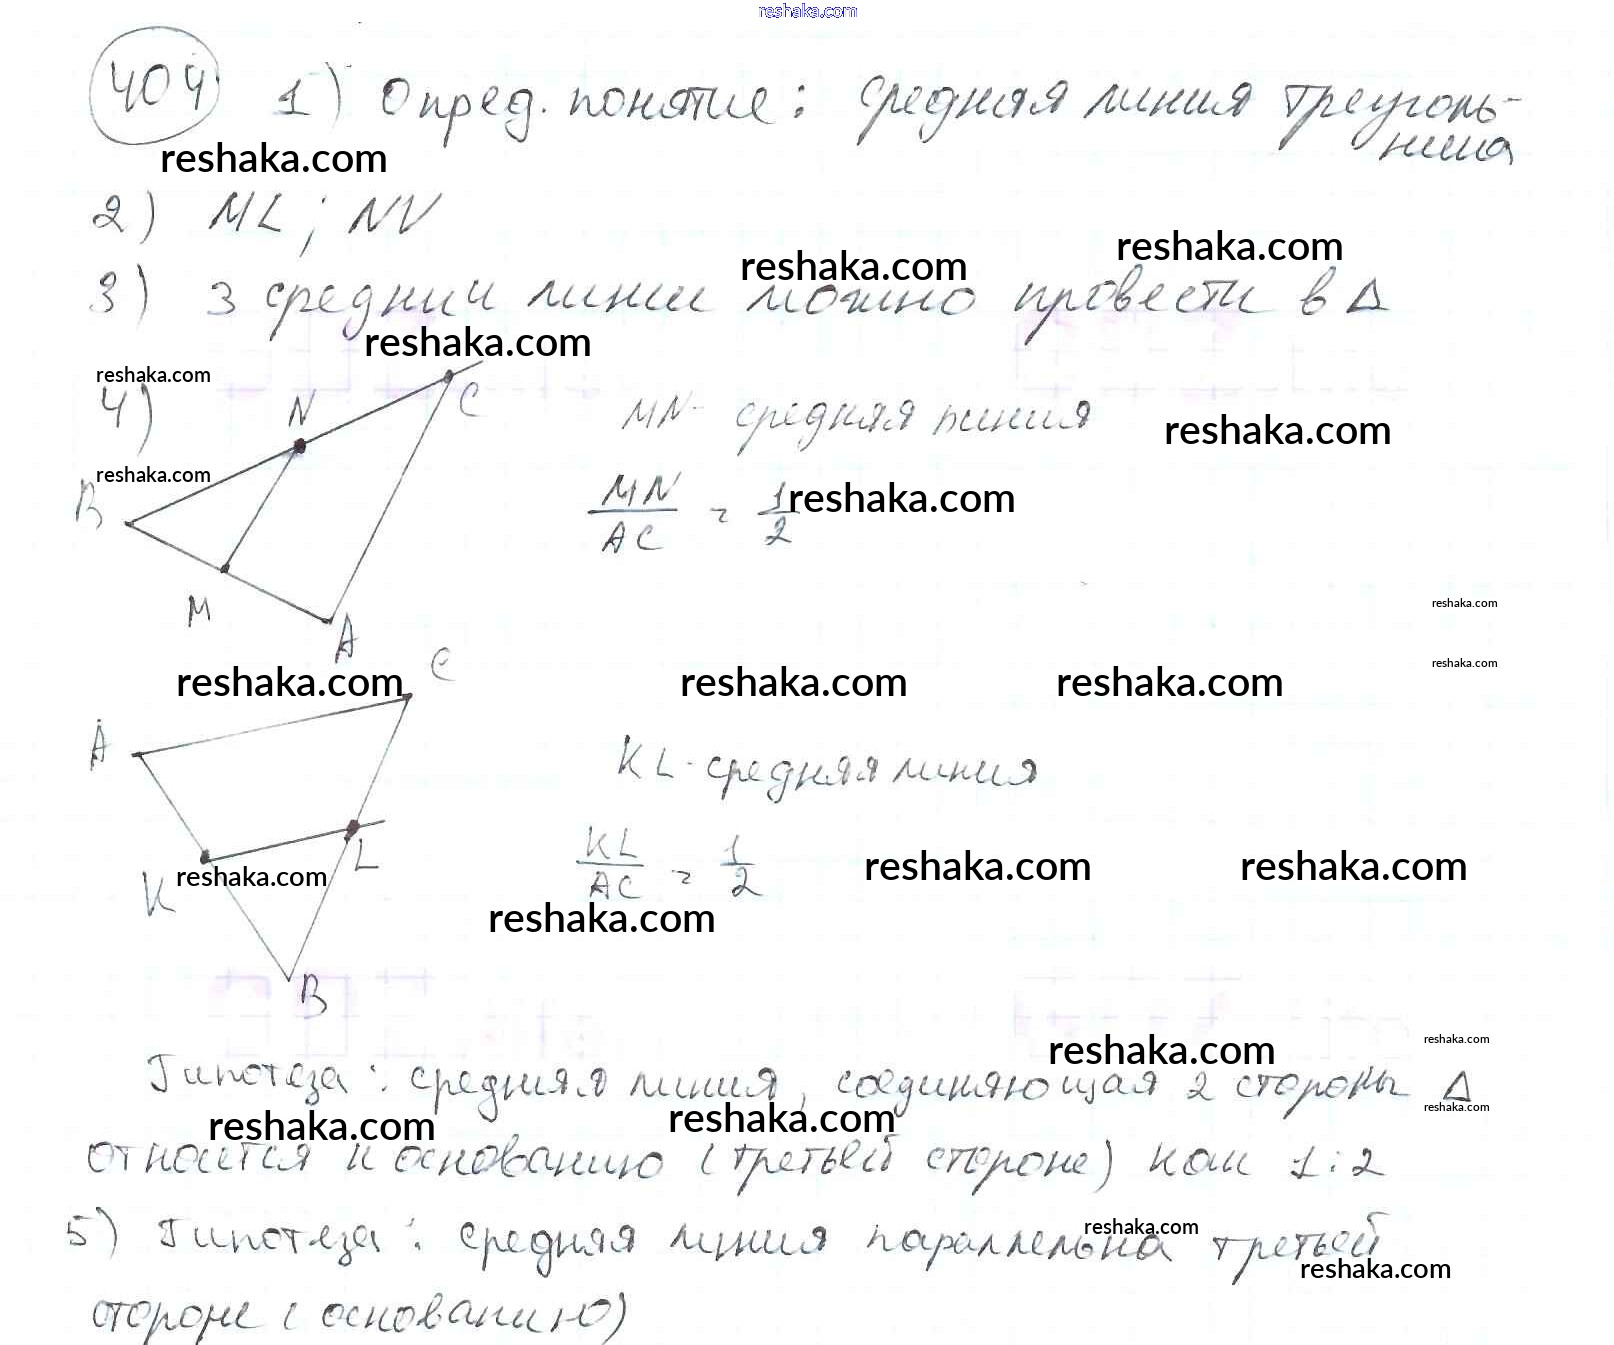 reshaka.com
404 1) Опред. понятие: средняя линия треуголь-
ника
reshaka.com
2) ML; NV
reshaka.com reshaka.com
3) 3 средних линии можно провести в Δ
reshaka.com
reshaka.com
4) N C MN - средняя линия reshaka.com
reshaka.com
B MN/AC = 1/2 reshaka.com
M
reshaka.com
A
C
reshaka.com reshaka.com reshaka.com reshaka.com
A KL - средняя линия
L KL/AC = 1/2 reshaka.com reshaka.com
K reshaka.com
reshaka.com
B
reshaka.com reshaka.com
Гипотеза: средняя линия, соединяющая 2 стороны Δ
reshaka.com reshaka.com reshaka.com
относится к основанию (третьей стороне) как 1:2
5) Гипотеза: средняя линия параллельна третьей
reshaka.com
reshaka.com
стороне (основанию)